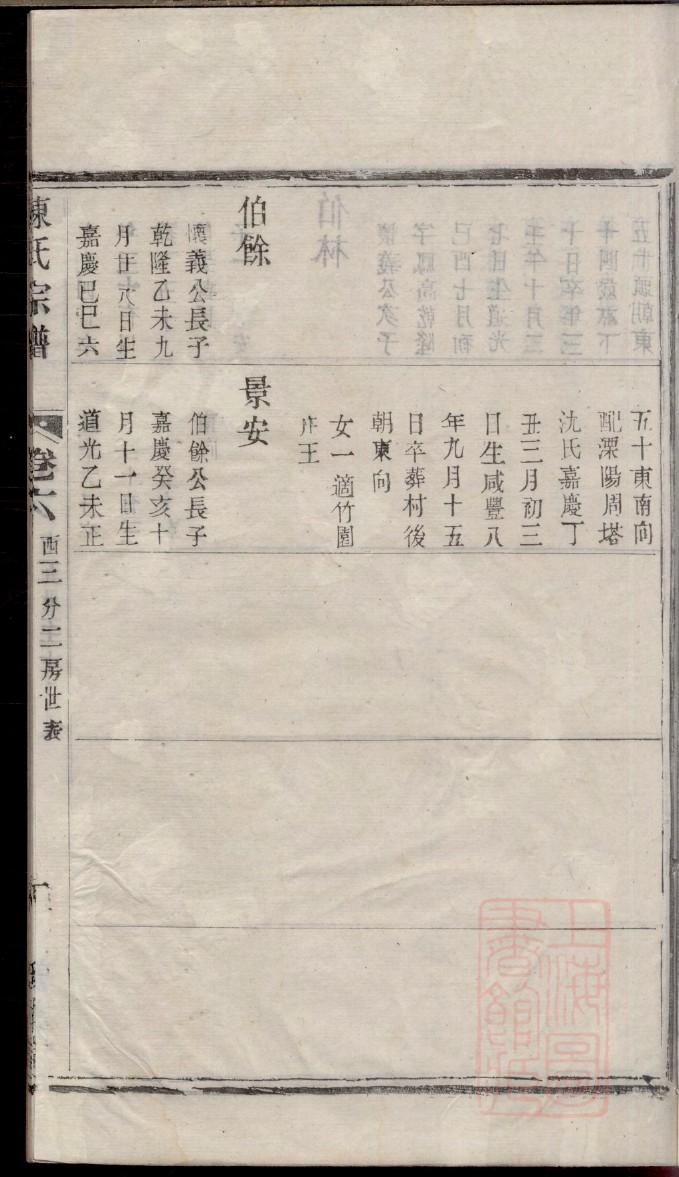 伯餘
懷義公長子
乾隆乙未九
月廿八日生
嘉慶己巳六
五十東南向
配溧陽周塔
沈氏嘉慶丁
丑三月初三
日生咸豐八
年九月十五
日卒葬村後
朝東向
女一適竹園
庄王
景安
伯餘公長子
嘉慶癸亥十
月十一日生
道光乙未正
陳氏宗譜
卷六
西三分二房世表
上海圖
書館藏